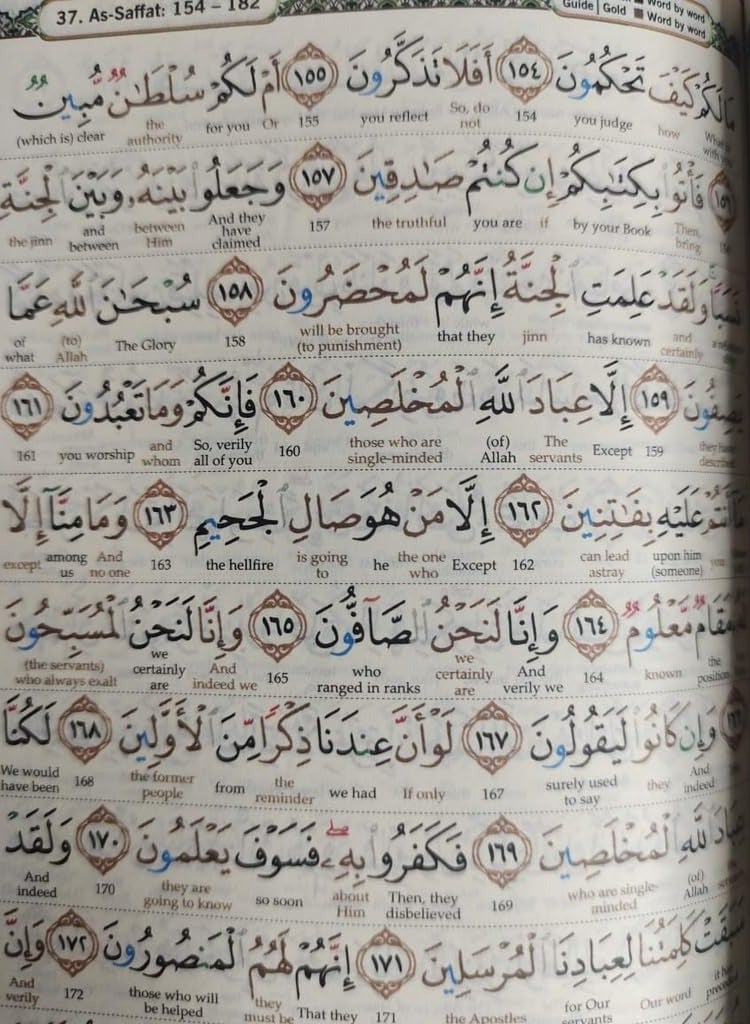 37. As-Saffat: 154 – 182
Guide | Gold Word by word
Word by word
مَالَكُمْ كَيْفَ تَحْكُمُونَ ١٥٤ أَفَلَا تَذَكَّرُونَ ١٥٥ أَمْ لَكُمْ سُلْطَـٰنٌ مُّبِينٌ
how you judge 154 So, do not you reflect 155 Or for you the authority (which is) clear
فَأْتُوا۟ بِكِتَـٰبِكُمْ إِن كُنتُمْ صَـٰدِقِينَ ١٥٧ وَجَعَلُوا۟ بَيْنَهُۥ وَبَيْنَ ٱلْجِنَّةِ
Then, bring by your Book if you are the truthful 157 And they have claimed between Him and between the jinn
نَسَبًا وَلَقَدْ عَلِمَتِ ٱلْجِنَّةُ إِنَّهُمْ لَمُحْضَرُونَ ١٥٨ سُبْحَـٰنَ ٱللَّهِ عَمَّا
and certainly has known jinn that they will be brought (to punishment) 158 The Glory (to) Allah of what
يَصِفُونَ ١٥٩ إِلَّا عِبَادَ ٱللَّهِ ٱلْمُخْلَصِينَ ١٦٠ فَإِنَّكُمْ وَمَا تَعْبُدُونَ ١٦١
159 Except The servants (of) Allah those who are single-minded 160 So, verily all of you and whom you worship 161
مَآ أَنتُمْ عَلَيْهِ بِفَـٰتِنِينَ ١٦٢ إِلَّا مَنْ هُوَ صَالِ ٱلْجَحِيمِ ١٦٣ وَمَا مِنَّآ إِلَّا
you upon him (someone) can lead astray 162 Except the one who he is going to the hellfire 163 And no one among us except
مَقَامٌ مَّعْلُومٌ ١٦٤ وَإِنَّا لَنَحْنُ ٱلصَّآفُّونَ ١٦٥ وَإِنَّا لَنَحْنُ ٱلْمُسَبِّحُونَ
the position known 164 And verily we we certainly are who ranged in ranks 165 And indeed we we certainly are (the servants) who always exalt
وَإِن كَانُوا۟ لَيَقُولُونَ ١٦٧ لَوْ أَنَّ عِندَنَا ذِكْرًا مِّنَ ٱلْأَوَّلِينَ ١٦٨ لَكُنَّا
And indeed they surely used to say 167 If only we had the reminder from the former people 168 We would have been
عِبَادَ ٱللَّهِ ٱلْمُخْلَصِينَ ١٦٩ فَكَفَرُوا۟ بِهِۦ فَسَوْفَ يَعْلَمُونَ ١٧٠ وَلَقَدْ
(of) Allah who are single-minded 169 Then, they disbelieved about Him so soon they are going to know 170 And indeed
سَبَقَتْ كَلِمَتُنَا لِعِبَادِنَا ٱلْمُرْسَلِينَ ١٧١ إِنَّهُمْ لَهُمُ ٱلْمَنصُورُونَ ١٧٢ وَإِنَّ
Our word for Our servants the Apostles 171 That they they must be those who will be helped 172 And verily